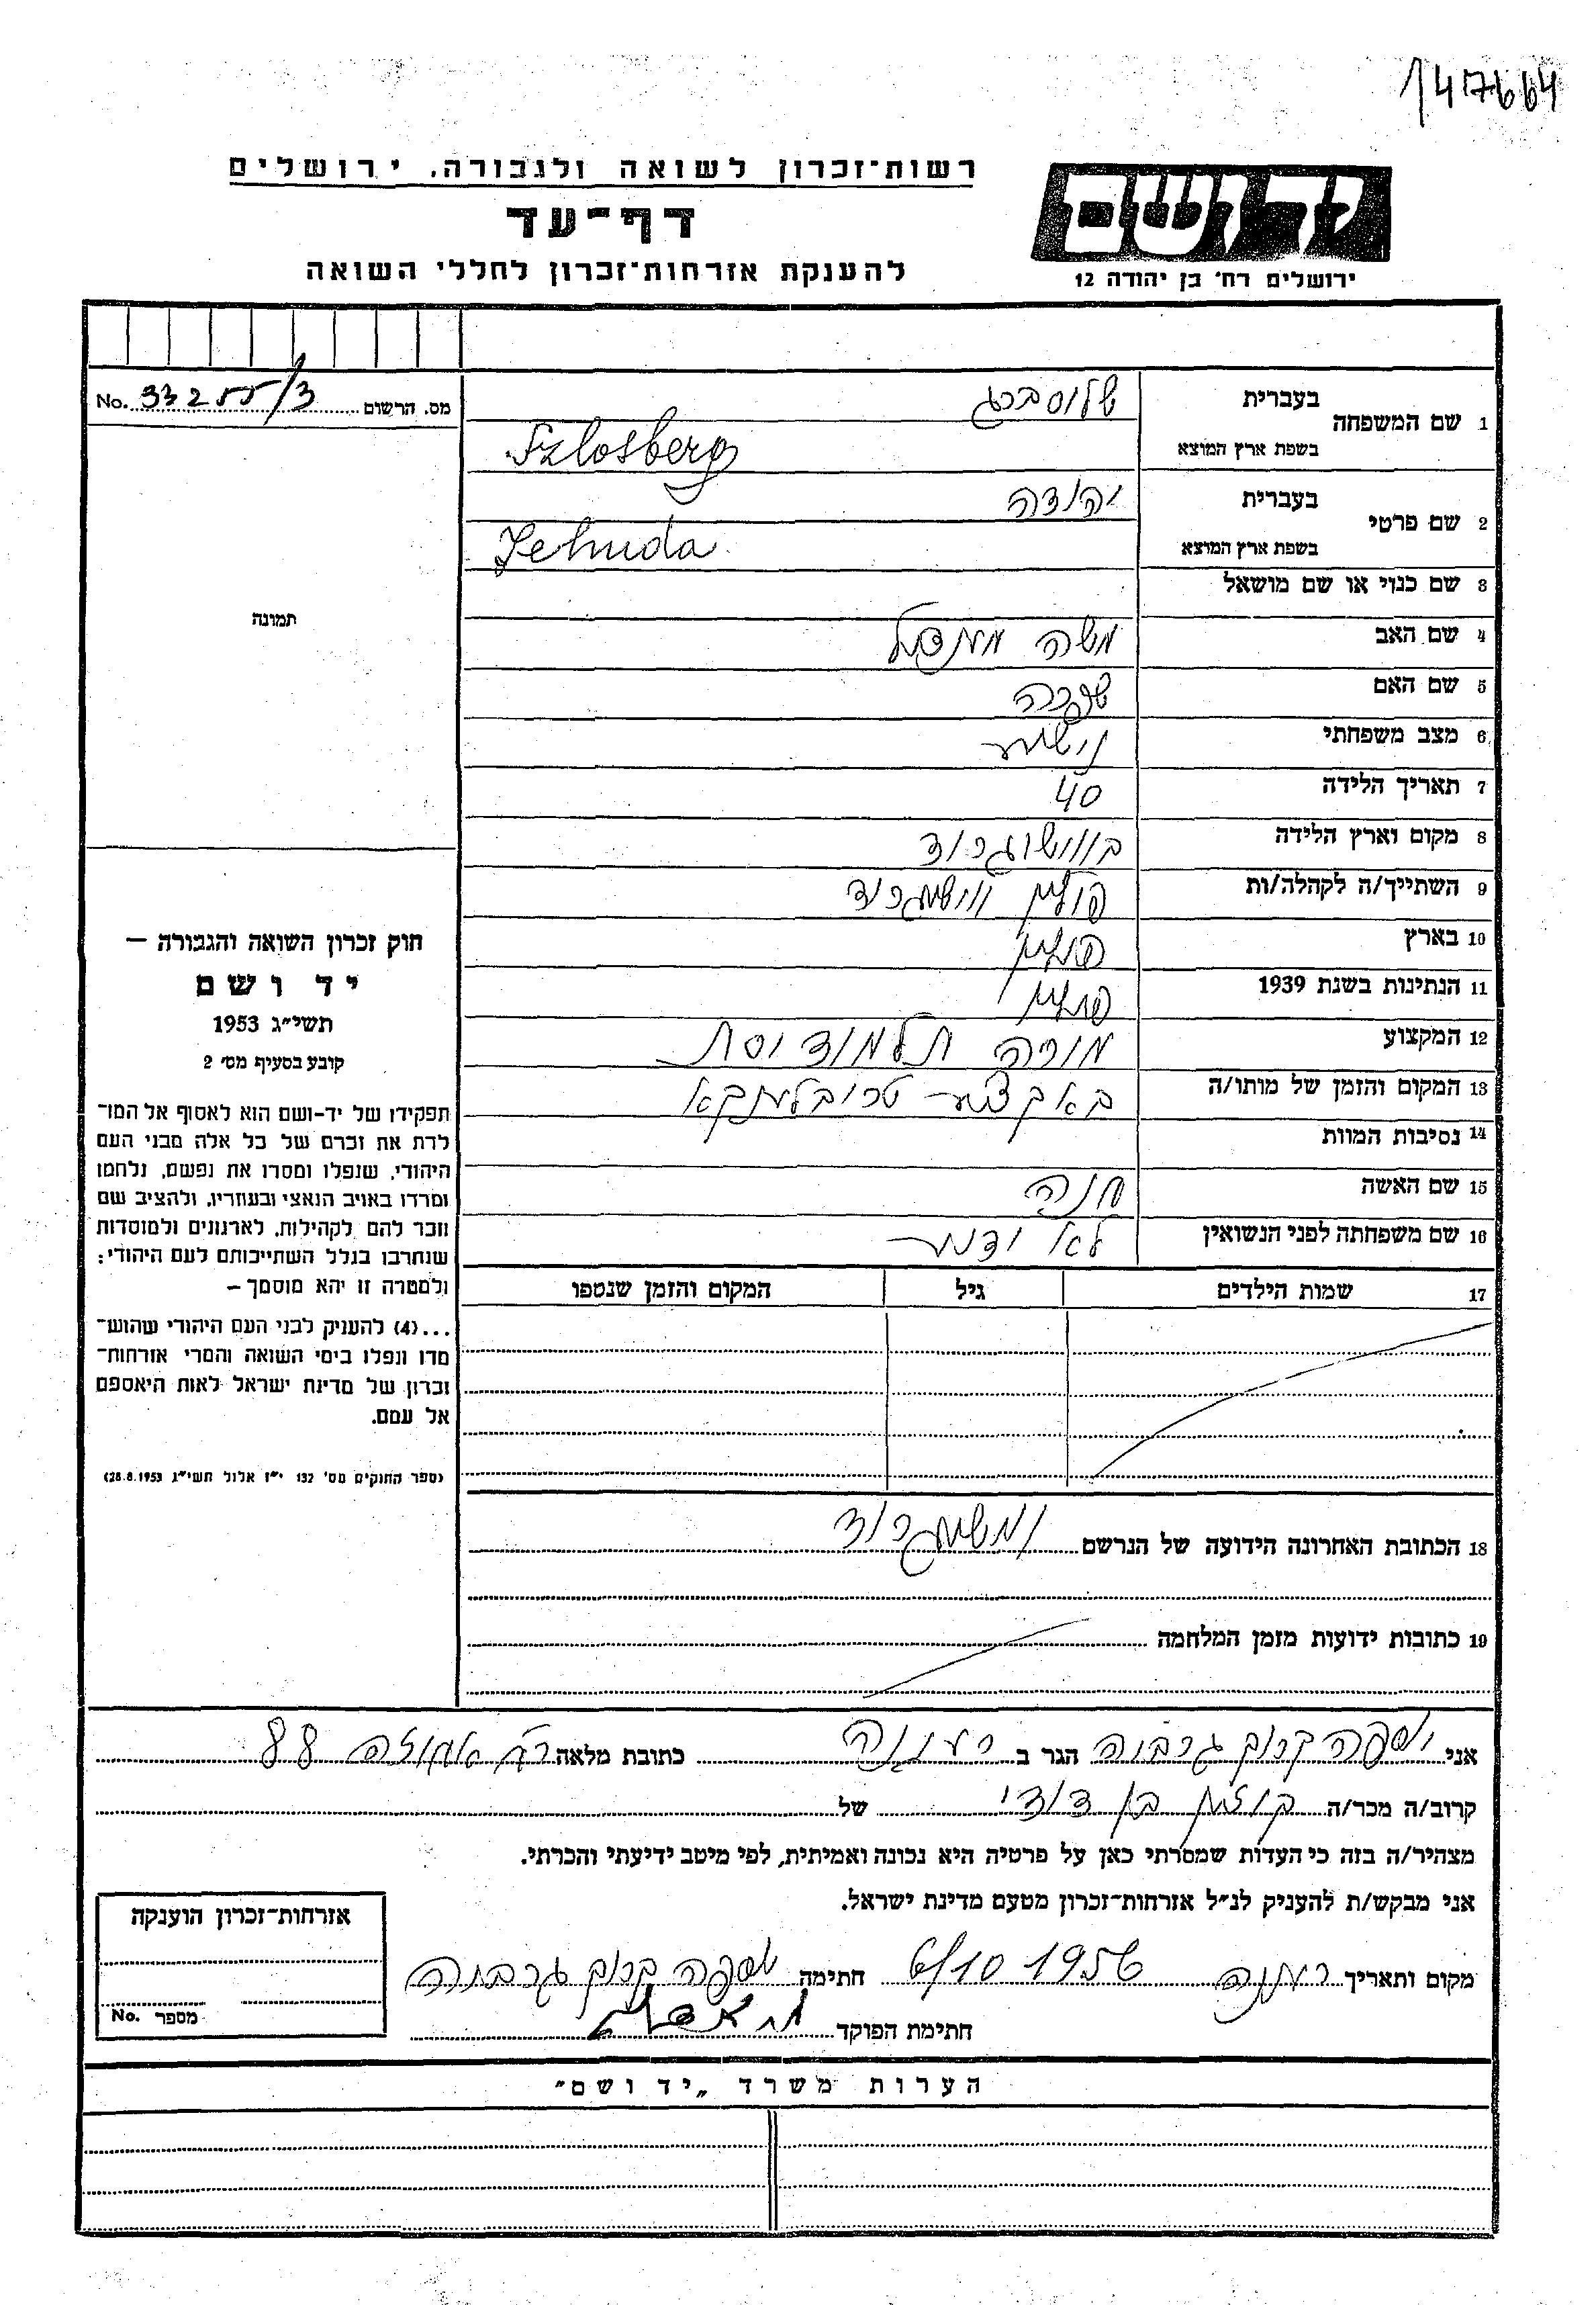 147664
רשות-זכרון לשואה ולגבורה, ירושלים
דף-עד
להענקת אזרחות-זכרון לחללי השואה
יד ושם
ירושלים רח' בן יהודה 12
מס. הרשום No. 33255/3
תמונה
חוק זכרון השואה והגבורה –
יד ושם
תשי"ג 1953
קובע בסעיף מס' 2
תפקידו של יד-ושם הוא לאסוף אל המו-
לדת את זכרם של כל אלה מבני העם
היהודי, שנפלו ומסרו את נפשם, נלחמו
ומרדו באויב הנאצי ובעוזריו, ולהציב שם
וזכר להם לקהילות, לארגונים ולמוסדות
שנחרבו בגלל השתייכותם לעם היהודי;
ולמטרה זו יהא מוסמך –
...(4) להעניק לבני העם היהודי שהוש-
מדו ונפלו בימי השואה והמרי אזרחות-
זכרון של מדינת ישראל לאות היאספם
אל עמם.
(ספר החוקים מס' 132 י"ז אלול תשי"ג 28.8.1953)
1 שם המשפחה בעברית שלוסברג
בשפת ארץ המוצא Szlosberg
2 שם פרטי בעברית יהודה
בשפת ארץ המוצא Jehuda
3 שם כנוי או שם מושאל
4 שם האב משה מענדעל
5 שם האם שפרה
6 מצב משפחתי נישוי
7 תאריך הלידה 40
8 מקום וארץ הלידה בווישוגרוד
9 השתייך/ה לקהלה/ות פולין ווישוגרוד
10 בארץ פולין
11 הנתינות בשנת 1939 פולין
12 המקצוע מורה תלמוד
13 המקום והזמן של מותו/ה טרובלינקא
14 נסיבות המוות
15 שם האשה חנה
16 שם משפחתה לפני הנשואין לא
17 שמות הילדים גיל המקום והזמן שנספו
18 הכתובת האחרונה הידועה של הנרשם
19 כתובות ידועות מזמן המלחמה
אני יוספה גרבוה הגר ב רעננה כתובת מלאה רח אחוזה 88
קרוב/ה מכר/ה קוזין בן דודי של
מצהיר/ה בזה כי העדות שמסרתי כאן על פרטיה היא נכונה ואמיתית, לפי מיטב ידיעתי והכרתי.
אני מבקש/ת להעניק לנ"ל אזרחות-זכרון מטעם מדינת ישראל.
מקום ותאריך רעננה 6/10 1956 חתימה יוספה גרבוה
חתימת הפוקד
אזרחות-זכרון הוענקה
מספר No.
הערות משרד „יד ושם"